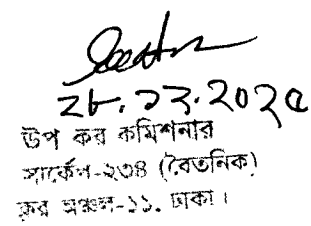 ২৮.১২.২০২৫
উপ কর কমিশনার
সার্কেল-২৩৪ (বৈতনিক)
কর অঞ্চল-১১, ঢাকা।